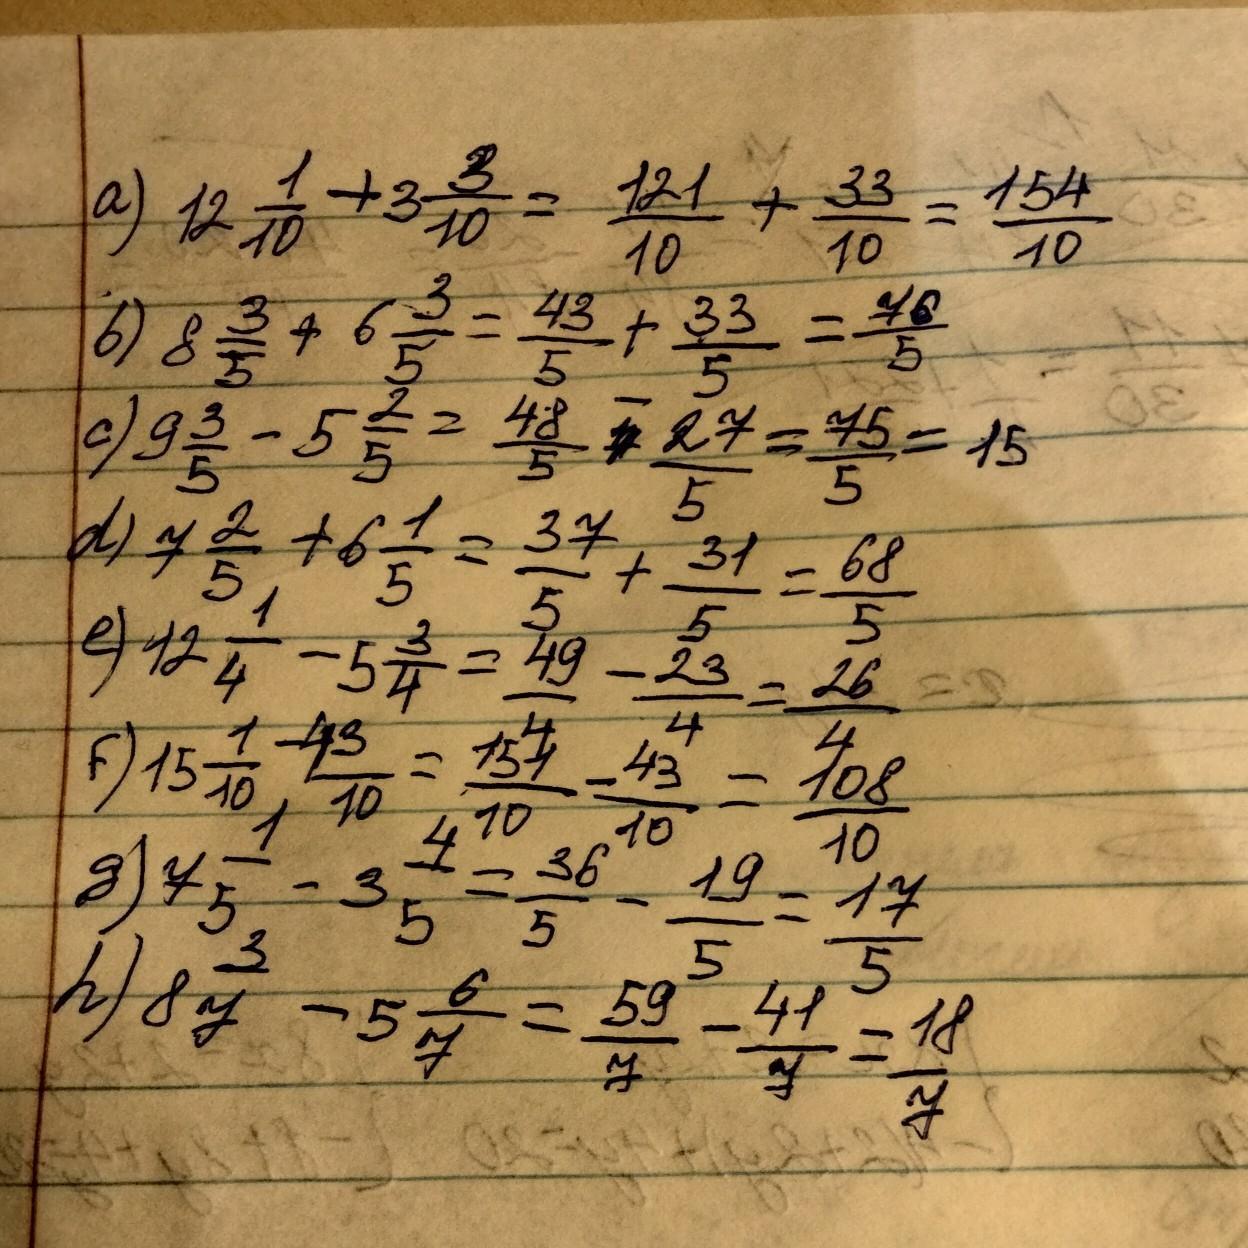 a) 12 1/10 + 3 3/10 = 121/10 + 33/10 = 154/10
b) 8 3/5 + 6 3/5 = 43/5 + 33/5 = 76/5
c) 9 3/5 - 5 2/5 = 48/5 - 27/5 = 75/5 = 15
d) 7 2/5 + 6 1/5 = 37/5 + 31/5 = 68/5
e) 12 1/4 - 5 3/4 = 49/4 - 23/4 = 26/4
f) 15 1/10 - 43/10 = 151/10 - 43/10 = 108/10
g) 7 1/5 - 3 4/5 = 36/5 - 19/5 = 17/5
h) 8 3/7 - 5 6/7 = 59/7 - 41/7 = 18/7